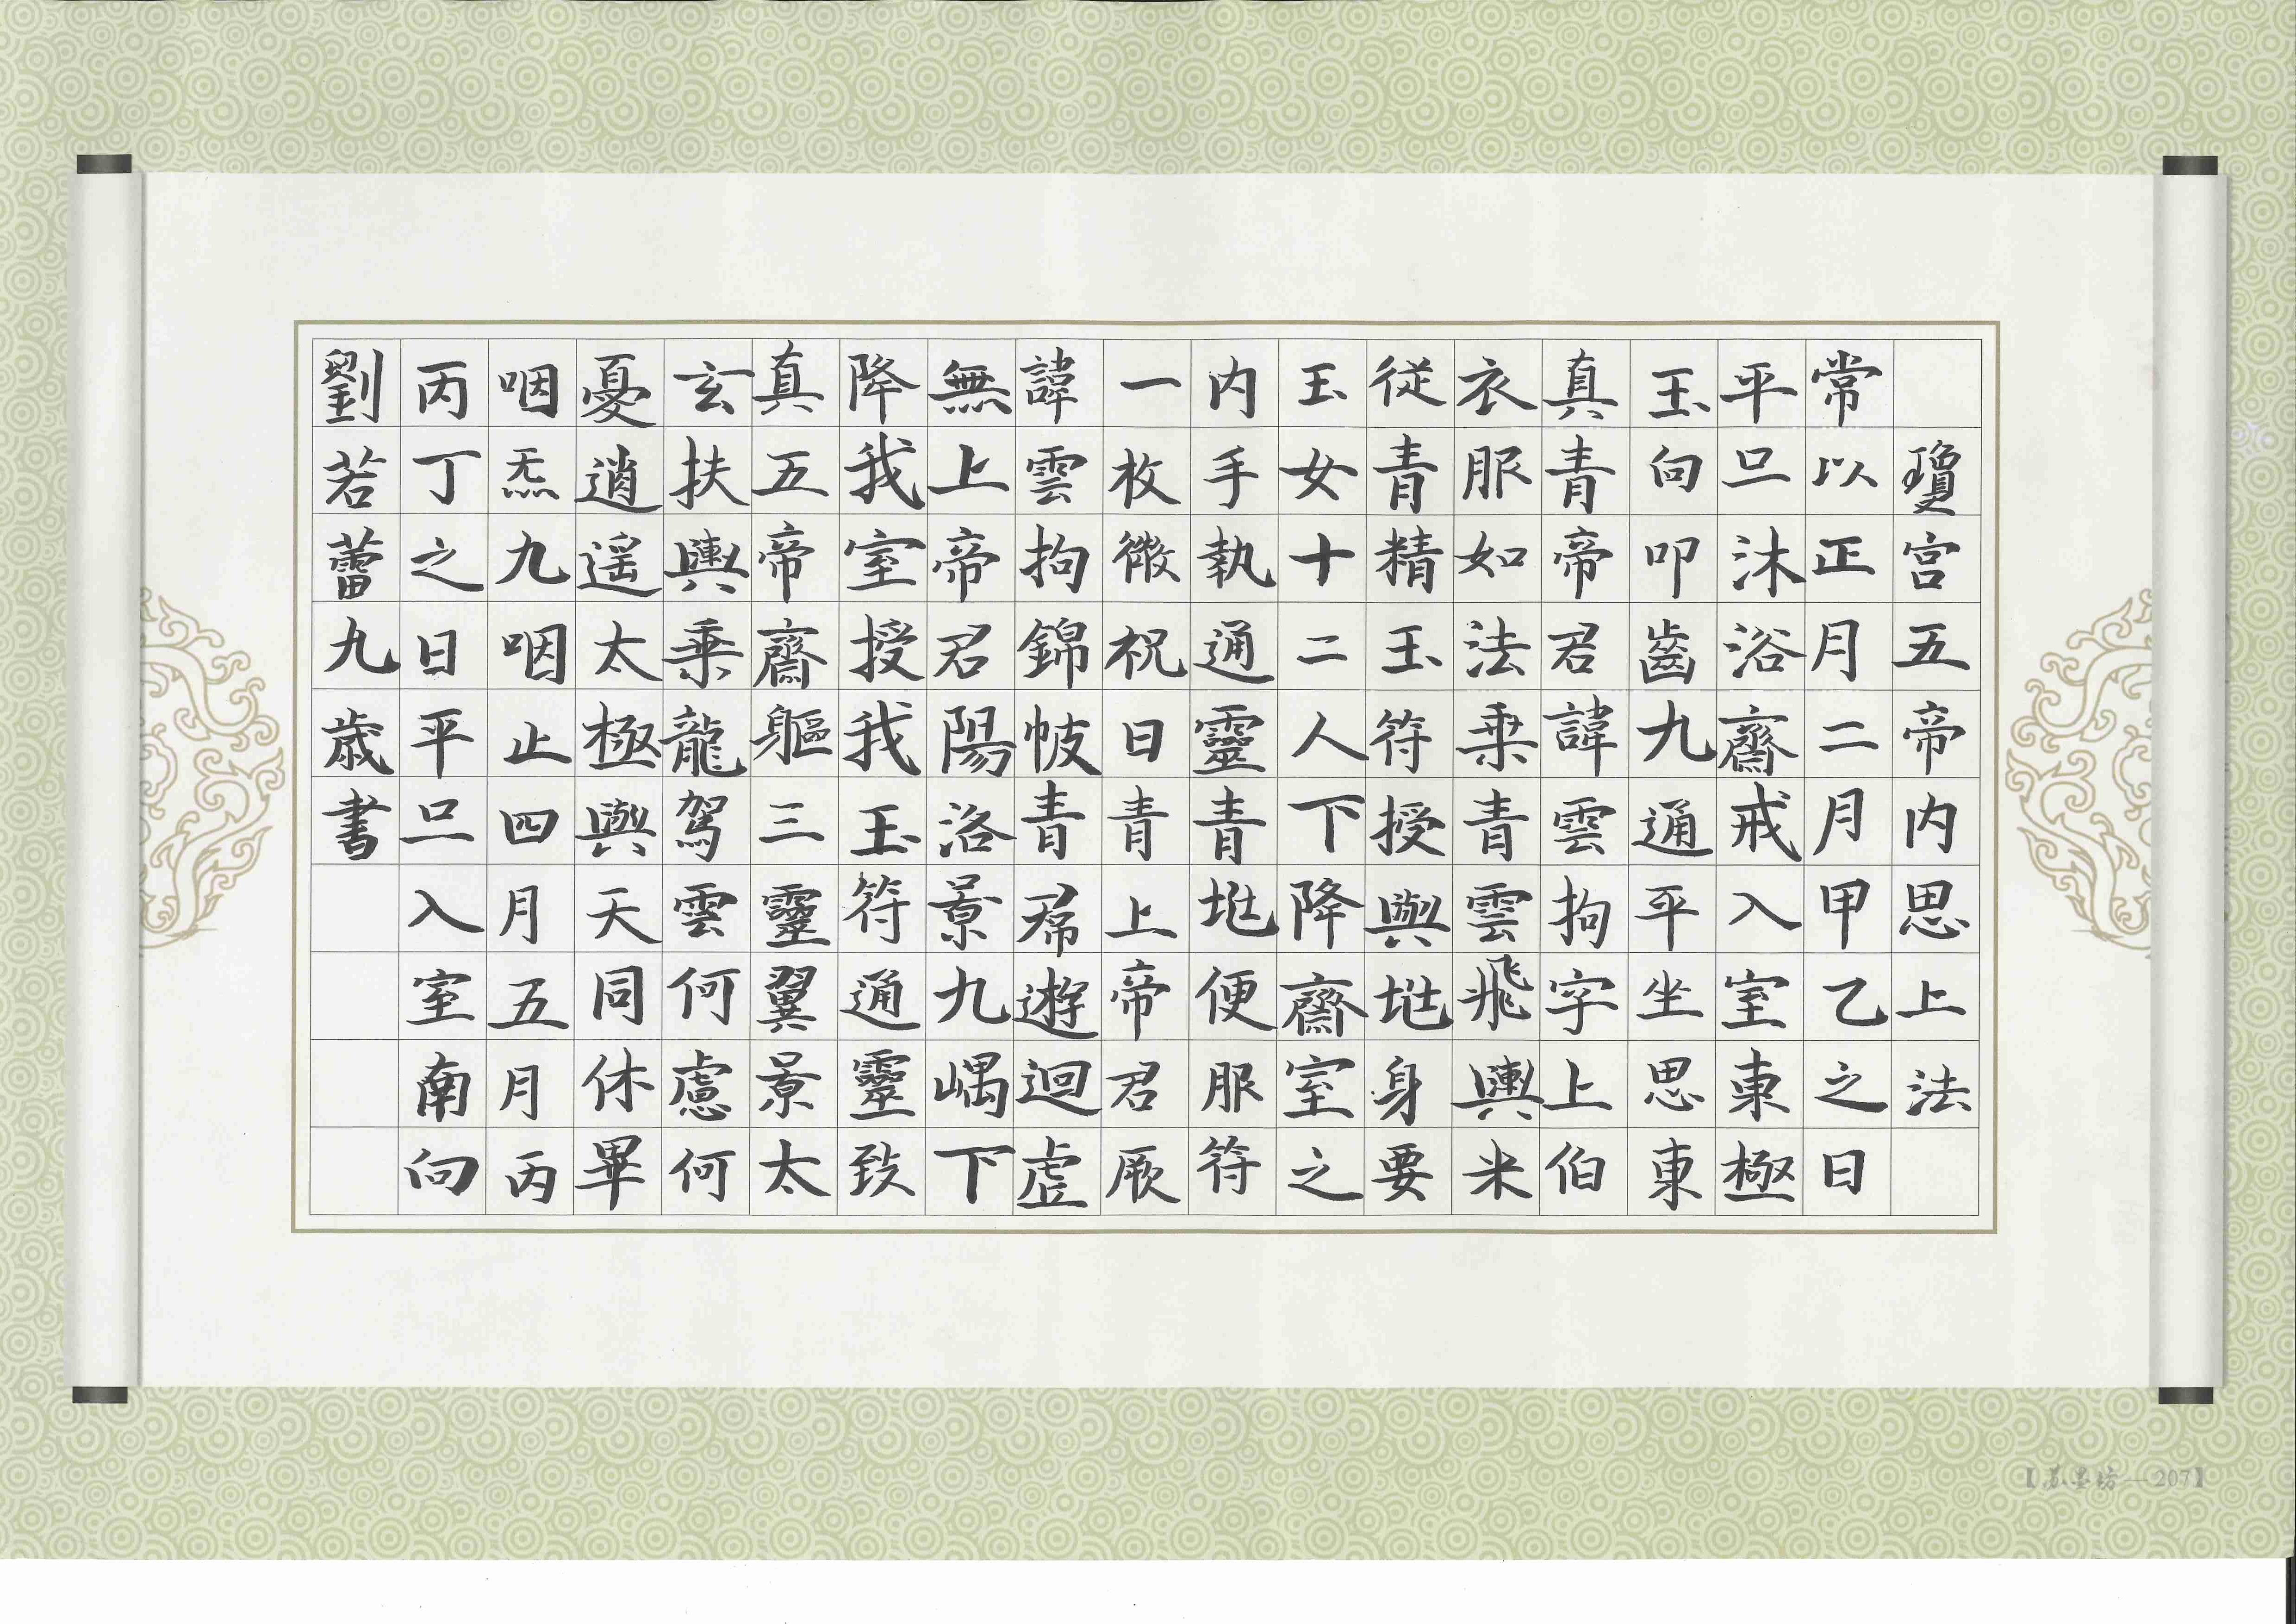 瓊宫五帝内思上法
常以正月二月甲乙之日
平旦沐浴齋戒入室東極
玉向叩齒九通平坐思東
真青帝君諱雲拘字上伯
衣服如法乘青雲飛輿米
従青精玉符授與兆身要
玉女十二人下降齋室之
内手執通靈青兆便服符
一枚微祝曰青上帝君厥
諱雲拘錦帔青帬遊迴虚
無上帝君陽洛景九嵎下
降我室授我玉符通靈致
真五帝齋軀三靈翼景太
玄扶輿乘龍駕雲何慮何
憂逍遥太極與天同休畢
咽炁九咽止四月五月丙
丙丁之日平旦入室南向
劉若蕾九歳書
【苏墨坊—207】